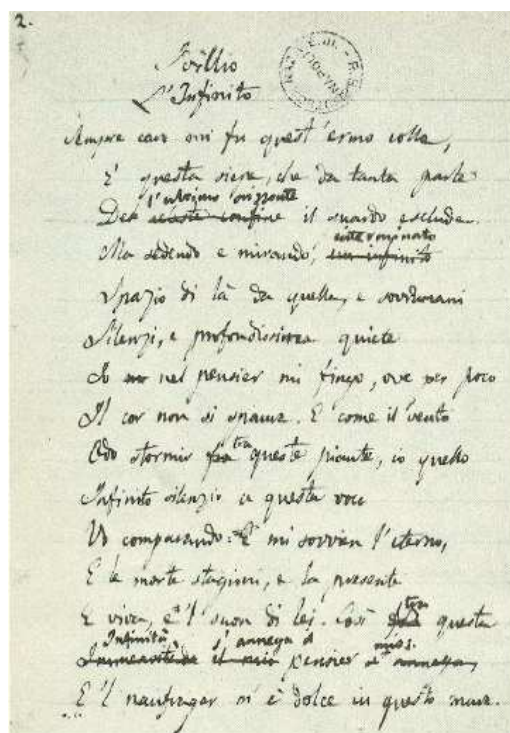 2.
Idillio
L'Infinito
Sempre caro mi fu quest'ermo colle,
E questa siepe, che da tanta parte
l'ultimo orizzonte
Del celeste confine il guardo esclude.
interminato
Ma sedendo e mirando, un infinito
Spazio di là da quella, e sovrumani
Silenzi, e profondissima quiete
Io nel pensier mi fingo, ove per poco
Il cor non si spaura. E come il vento
tra
Odo stormir fra queste piante, io quello
Infinito silenzio a questa voce
Vo comparando: E mi sovvien l'eterno,
E le morte stagioni, e la presente
tra
E viva, e 'l suon di lei. Così fra questa
Infinità s'annega il mio.
il mio pensier
E 'l naufragar m'è dolce in questo mare.